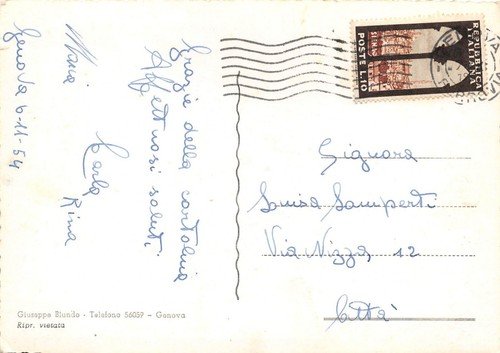 Genova 6-11-54
Grazie della cartolina
Affettuosi saluti
Maria
Carla
Rina
Signora
Luisa Samperti
Via Nizza 12
Città
REPUBBLICA
ITALIANA
POSTE L.10
Giuseppe Biondo - Telefono 56059 - Genova
Ripr. vietata